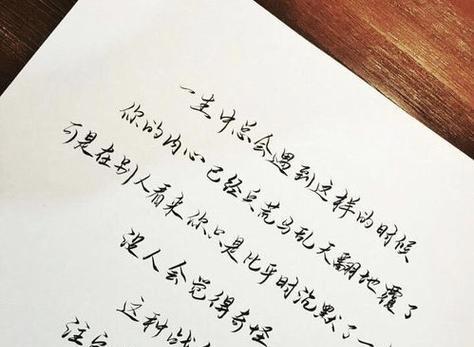 一生中总会遇到这样的时候
你的内心已经兵荒马乱天翻地覆了
可是在别人看来你只是比平时沉默了一
没人会觉得奇怪
这种战
注定